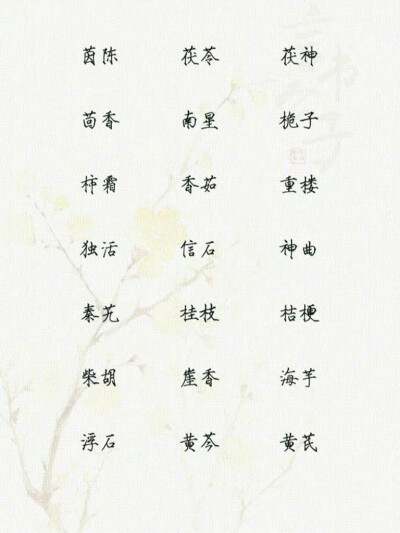 茵陈 茯苓 茯神
茴香 南星 栀子
柿霜 香茹 重楼
独活 信石 神曲
秦艽 桂枝 桔梗
柴胡 崖香 海芋
浮石 黄芩 黄芪